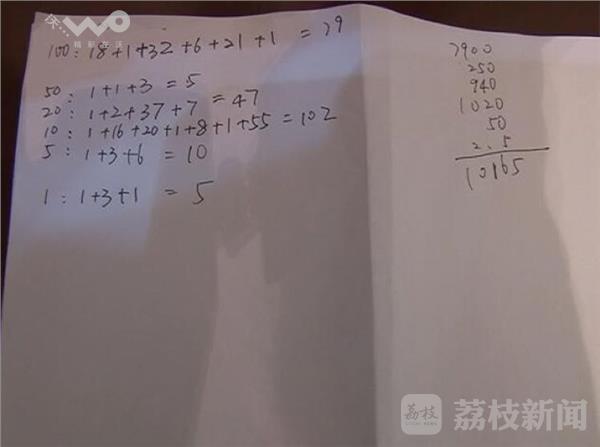 WO
精彩生活
100: 18+1+32+6+21+1 = 79
50: 1+1+3 = 5
20: 1+2+37+7 = 47
10: 1+16+20+1+8+1+55 = 102
5: 1+3+6 = 10
1: 1+3+1 = 5
7900
250
940
1020
50
2.5
10165
荔枝
荔枝新闻